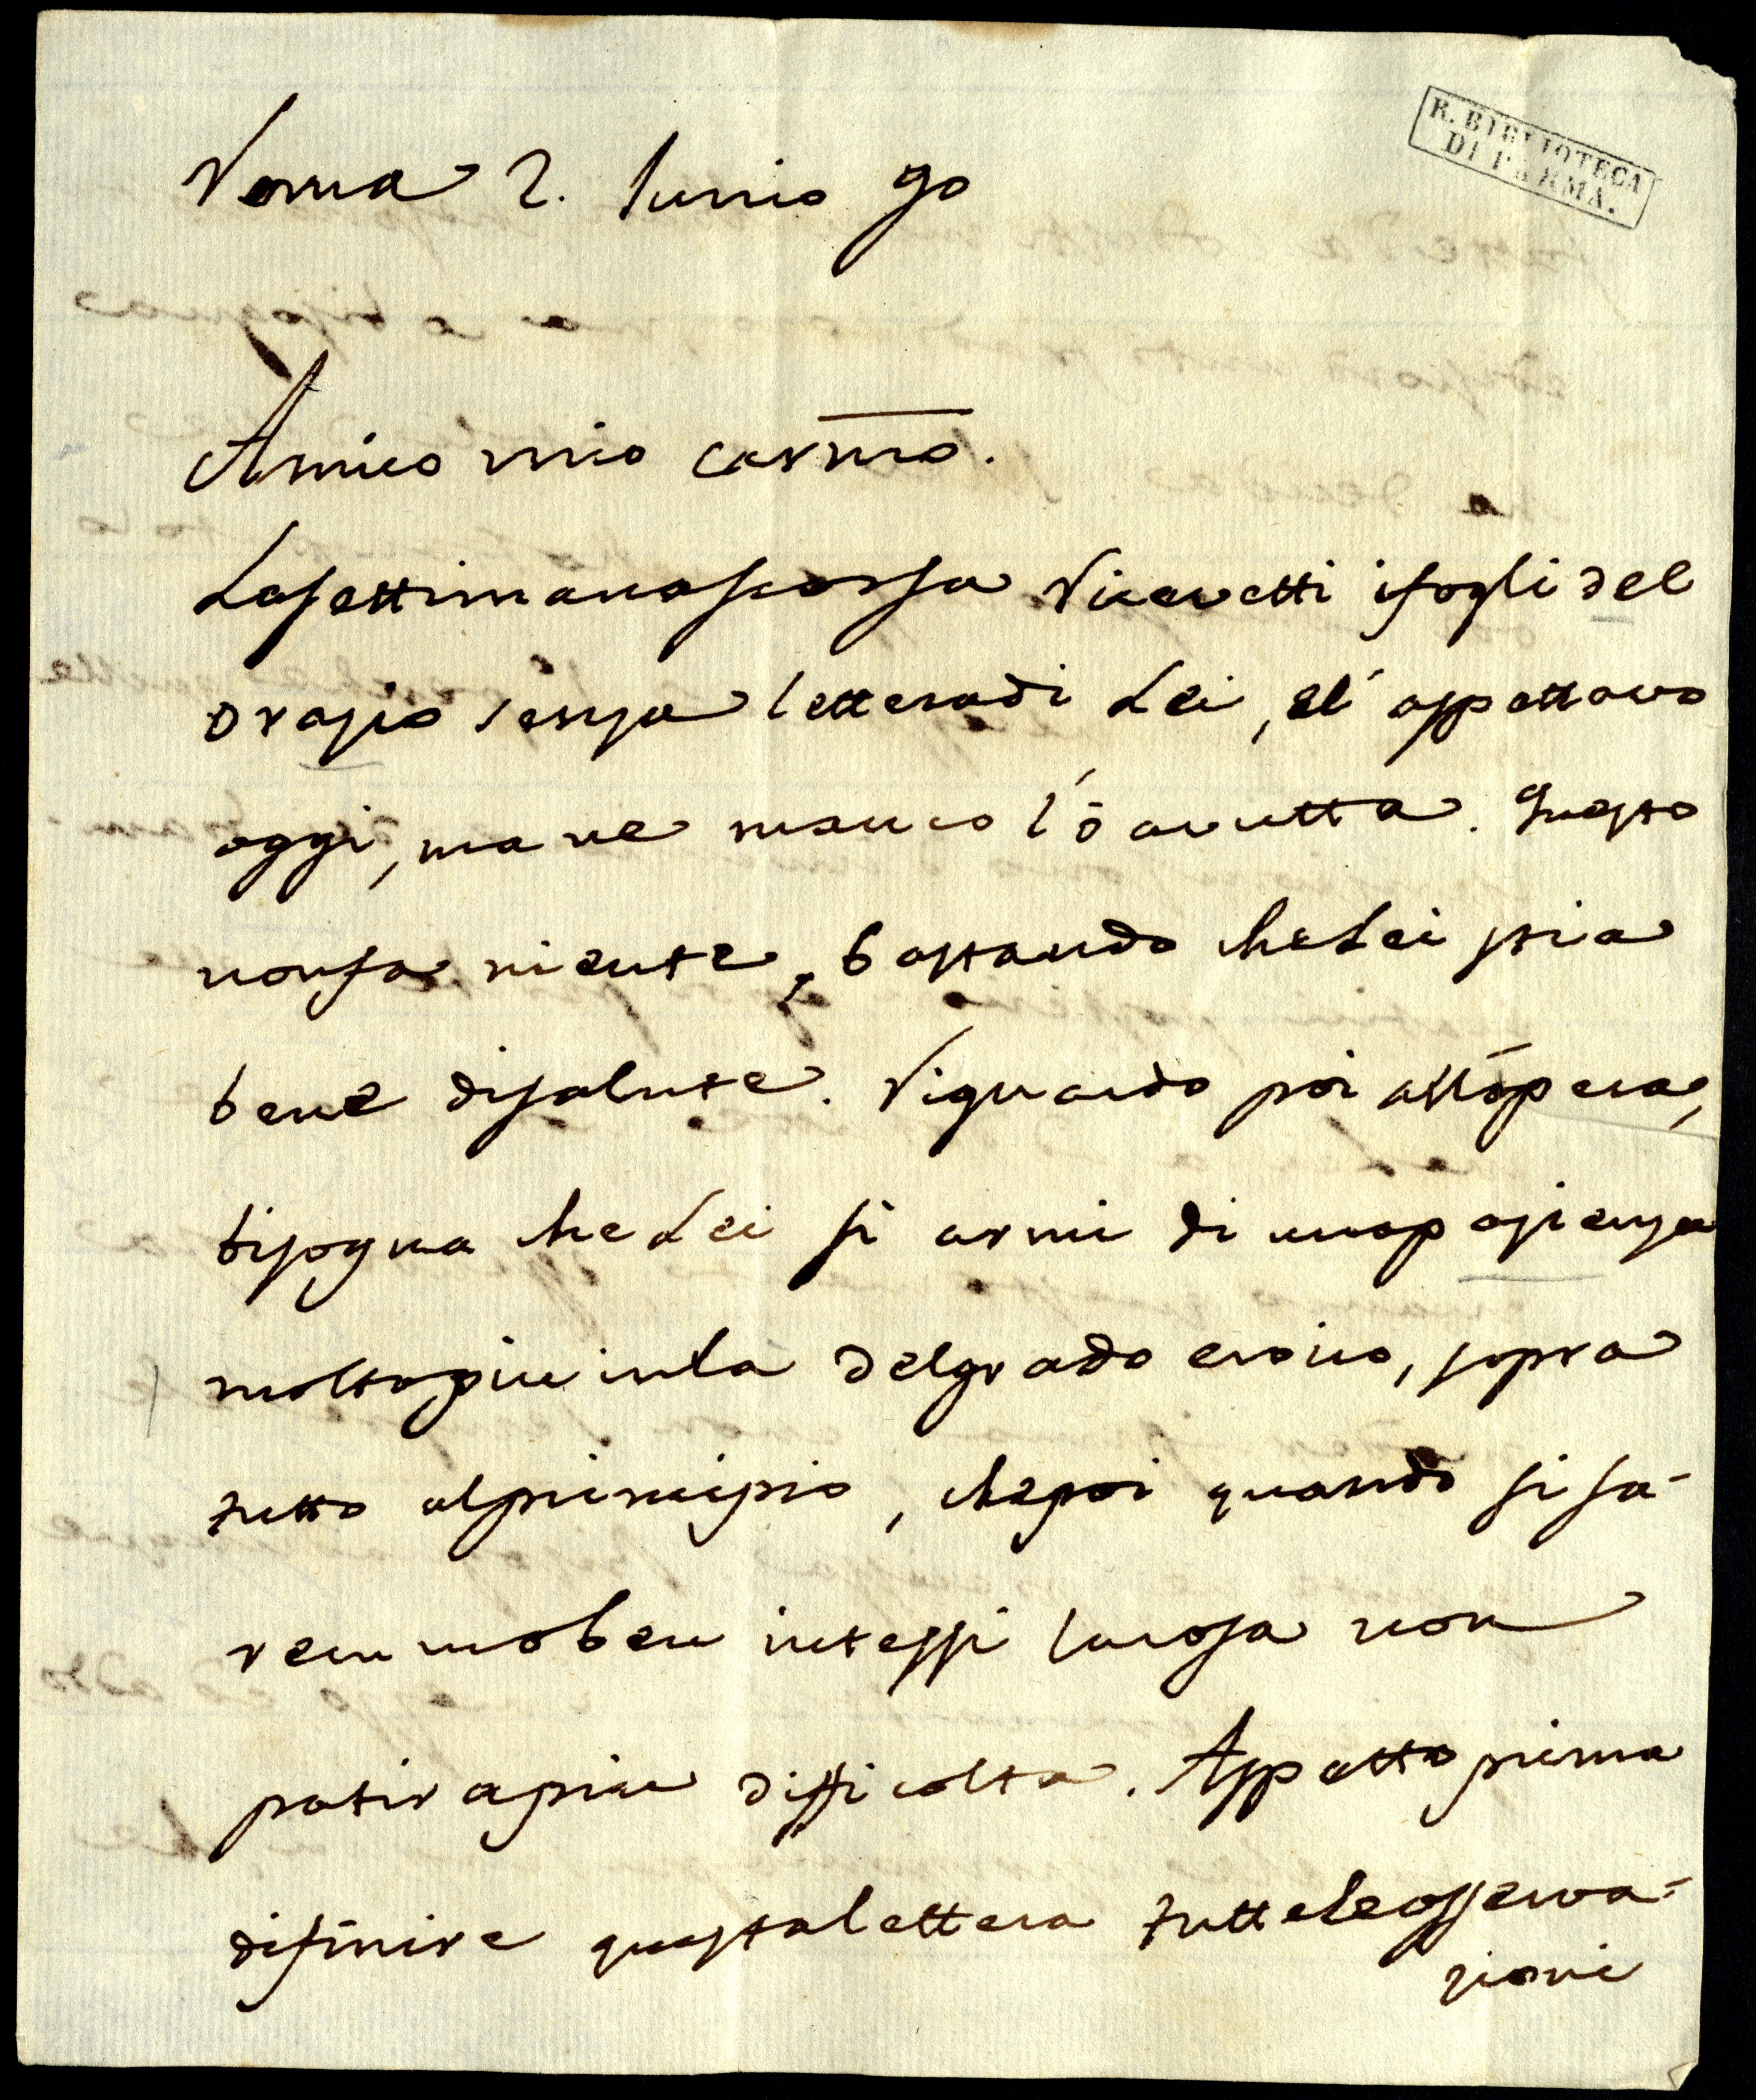 R. BIBLIOTECA
DI PARMA.
Roma 2. Iunio 90
Amico mio carmo.
La settimana scorsa ricevetti i fogli del
Orazio senza lettera di Lei, el' aspettavo
oggi, ma ne manco l'ó avutta. Questo
non fa niente, bastando che Lei stia
bene di salute. Riguardo poi all'opera,
bisogna che Lei si armi di una pazienza
molto piu in la del grado eroico, sopra
tutto al principio, che poi quando si sa-
remmo ben intessi la cosa non
patira piu difficolta. Aspetto prima
di finire questa lettera tutte le osserva=
zioni